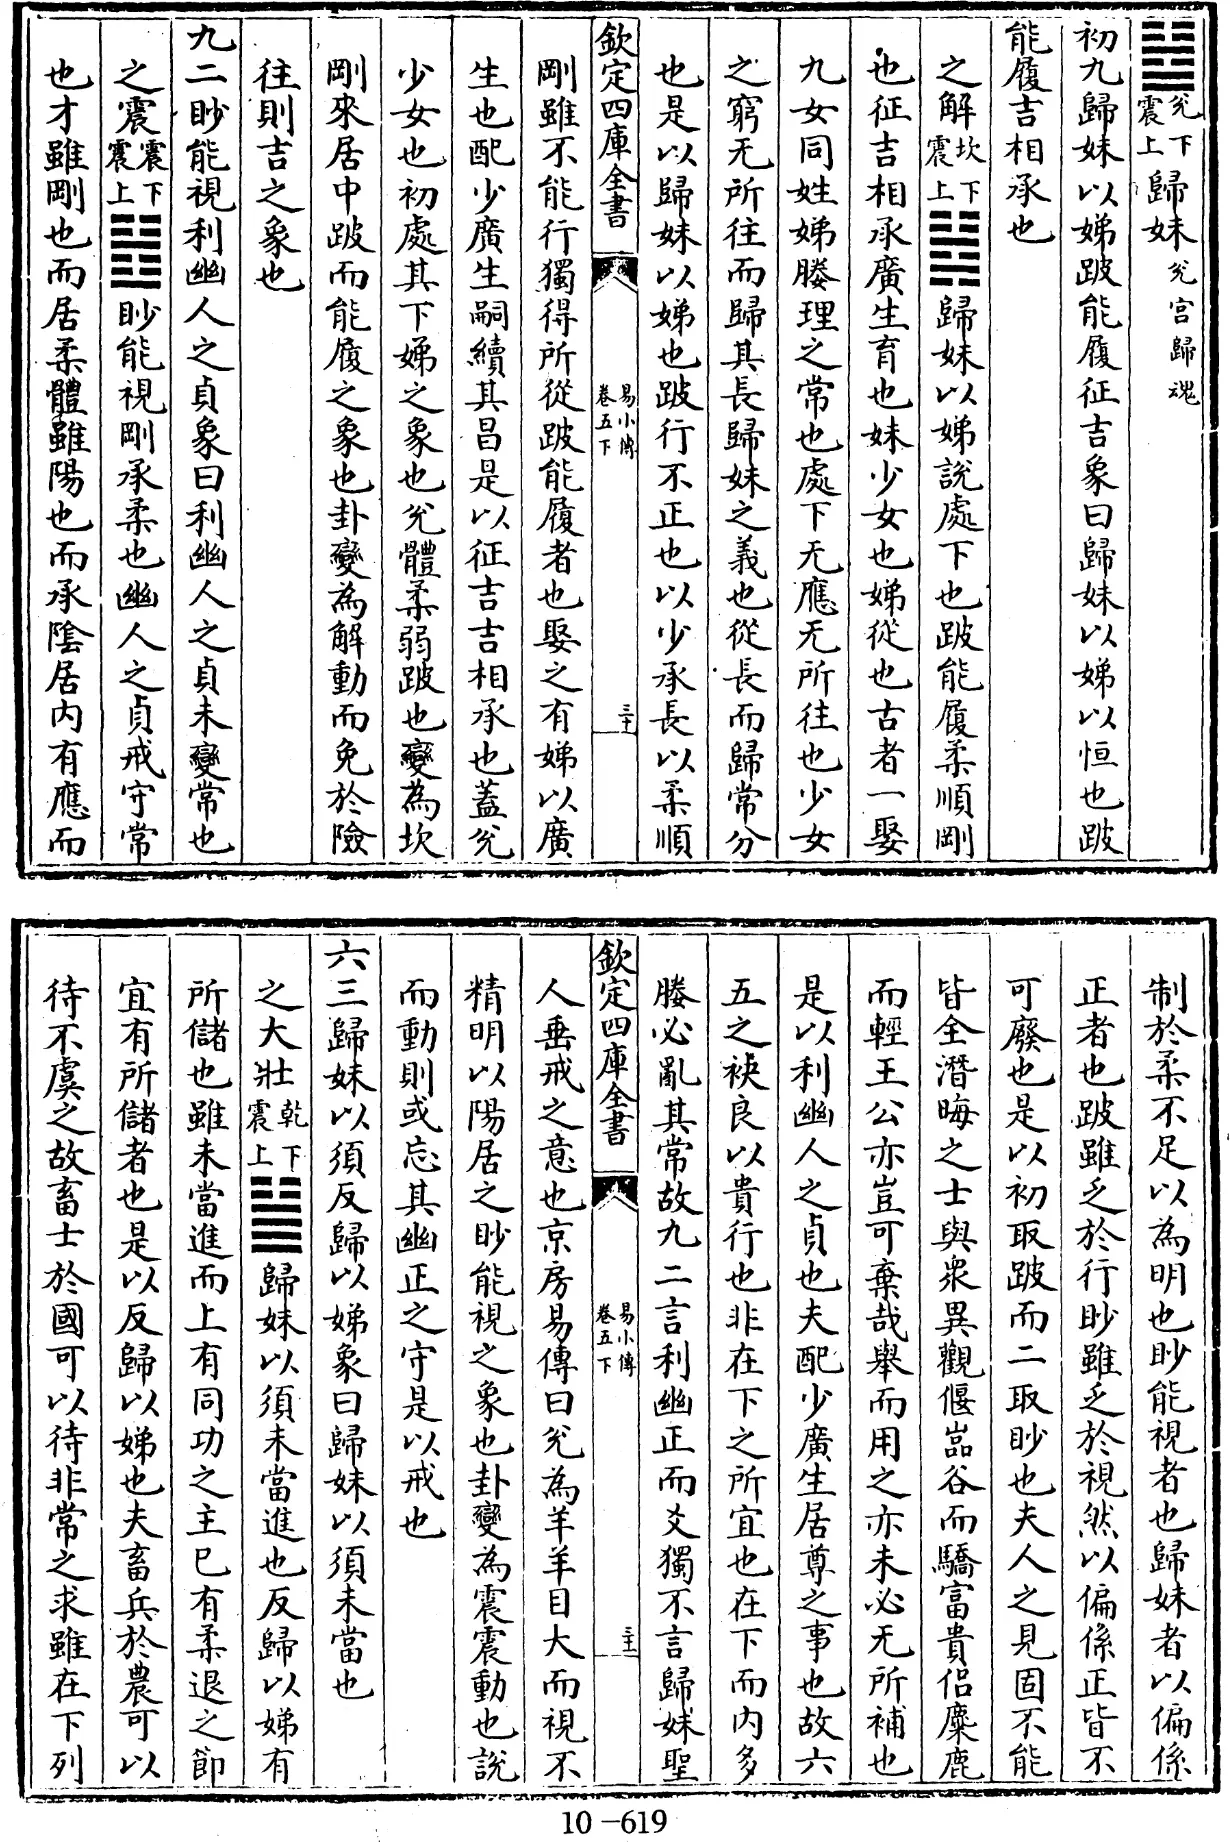 ䷵兌下震上歸妹兌宮歸魂
初九歸妹以娣跛能履征吉象曰歸妹以娣以恒也跛
能履吉相承也
之解坎下震上䷧歸妹以娣說處下也跛能履柔順剛
也征吉相承廣生育也妹少女也娣從也古者一娶
九女同姓娣媵理之常也處下无應无所往也少女
之窮无所往而歸其長歸妹之義也從長而歸常分
也是以歸妹以娣也跛行不正也以少承長以柔順
欽定四庫全書 易小傳卷五下 三十
剛雖不能行獨得所從跛能履者也娶之有娣以廣
生也配少廣生嗣續其昌是以征吉吉相承也蓋兌
少女也初處其下娣之象也兌體柔弱跛也變為坎
剛來居中跛而能履之象也卦變為解動而免於險
往則吉之象也
九二眇能視利幽人之貞象曰利幽人之貞未變常也
之震震下震上䷲眇能視剛承柔也幽人之貞戒守常
也才雖剛也而居柔體雖陽也而承陰居內有應而
制於柔不足以為明也眇能視者也歸妹者以偏係
正者也跛雖乏於行眇雖乏於視然以偏係正皆不
可廢也是以初取跛而二取眇也夫人之見固不能
皆全潛晦之士與衆異觀偃嵓谷而驕富貴侣麋鹿
而輕王公亦豈可棄哉舉而用之亦未必无所補也
是以利幽人之貞也夫配少廣生居尊之事也故六
五之袂良以貴行也非在下之所宜也在下而內多
媵必亂其常故九二言利幽正而爻獨不言歸妹聖
欽定四庫全書 易小傳卷五下 三十一
人垂戒之意也京房易傳曰兌為羊羊目大而視不
精明以陽居之眇能視之象也卦變為震震動也說
而動則或忘其幽正之守是以戒也
六三歸妹以須反歸以娣象曰歸妹以須未當也
之大壯乾下震上䷡歸妹以須未當進也反歸以娣有
所儲也雖未當進而上有同功之主已有柔退之節
宜有所儲者也是以反歸以娣也夫畜兵於農可以
待不虞之故畜士於國可以待非常之求雖在下列
10-619